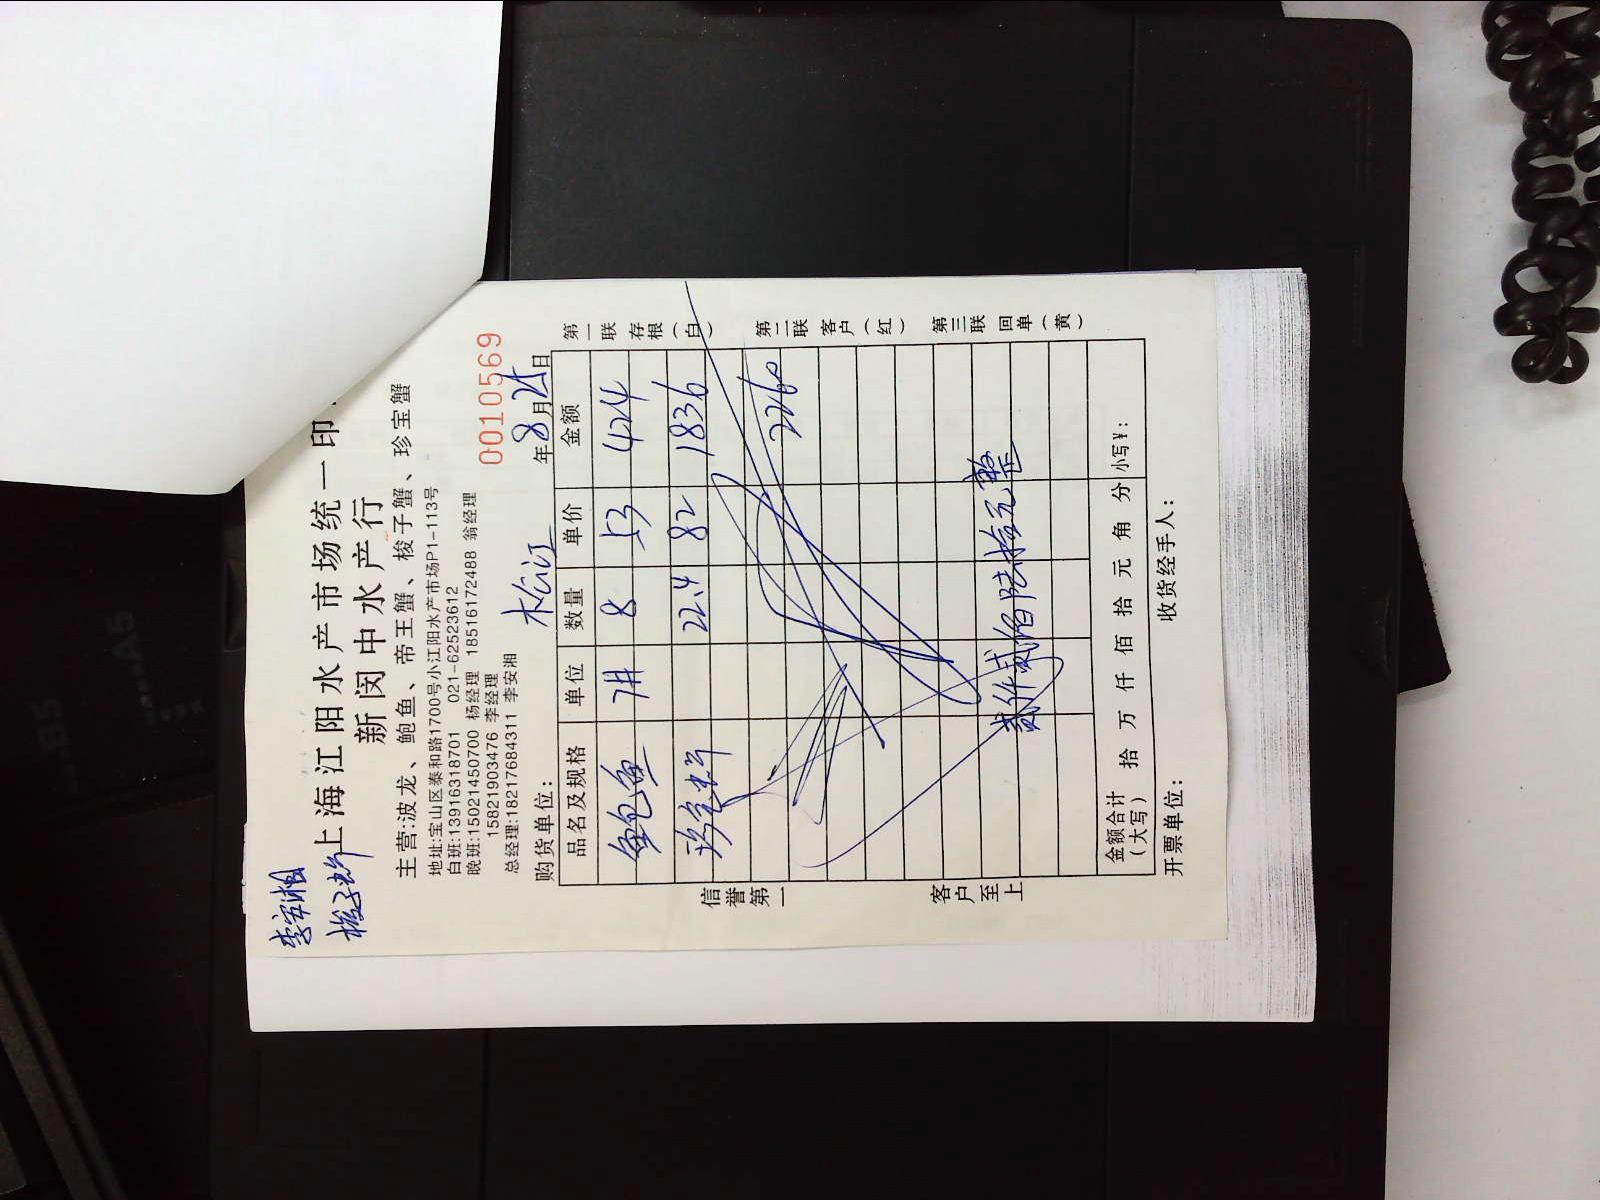 李安湘
梭子蟹
上海江阳水产市场统一印
新闵中水产行
主营:波龙、鲍鱼、帝王蟹、梭子蟹、珍宝蟹
地址:宝山区泰和路1700号小江阳水产市场P1-113号
白班:13916318701 021-62523612
晚班:15021450700 杨经理 18516172488 翁经理
15821903476 李经理
总经理:18217684311 李安湘
0010569
购货单位: 松江 年8月25日
品名及规格 单位 数量 单价 金额
鲍鱼 8 53 424
珍宝蟹 22.4 82 1836
2260
贰仟贰佰陆拾元整
金额合计(大写) 拾 万 仟 佰 拾 元 角 分 小写¥:
开票单位: 收货经手人:
信誉第一
客户至上
第一联 存根(白)
第二联 客户(红)
第三联 回单(黄)